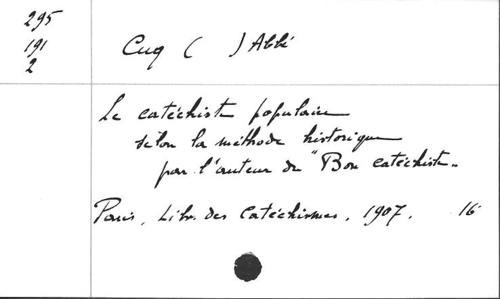 295
191
2
Cuq ( ) Abbé
Le catéchiste populaire
selon la méthode historique
par l'auteur du "Bon catéchiste"
Paris, Libr. des Catéchismes, 1907. 16